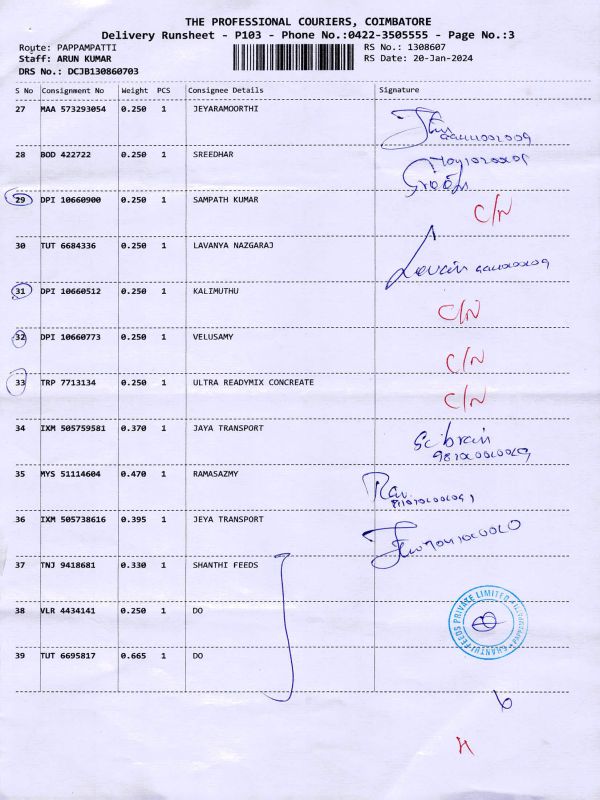 THE PROFESSIONAL COURIERS, COIMBATORE
Delivery Runsheet - P103 - Phone No.:0422-3505555 - Page No.:3
Route: PAPPAMPATTI RS No.: 1308607
Staff: ARUN KUMAR RS Date: 20-Jan-2024
DRS No.: DCJB130860703
S No Consignment No Weight PCS Consignee Details Signature
27 MAA 573293054 0.250 1 JEYARAMOORTHI
28 BOD 422722 0.250 1 SREEDHAR
29 DPI 10660900 0.250 1 SAMPATH KUMAR C/N
30 TUT 6684336 0.250 1 LAVANYA NAZGARAJ
31 DPI 10660512 0.250 1 KALIMUTHU C/N
32 DPI 10660773 0.250 1 VELUSAMY C/N
33 TRP 7713134 0.250 1 ULTRA READYMIX CONCREATE C/N
34 IXM 505759581 0.370 1 JAYA TRANSPORT
35 MYS 51114604 0.470 1 RAMASAZMY
36 IXM 505738616 0.395 1 JEYA TRANSPORT
37 TNJ 9418681 0.330 1 SHANTHI FEEDS
38 VLR 4434141 0.250 1 DO
SHANTHI FEEDS PRIVATE LIMITED
39 TUT 6695817 0.665 1 DO